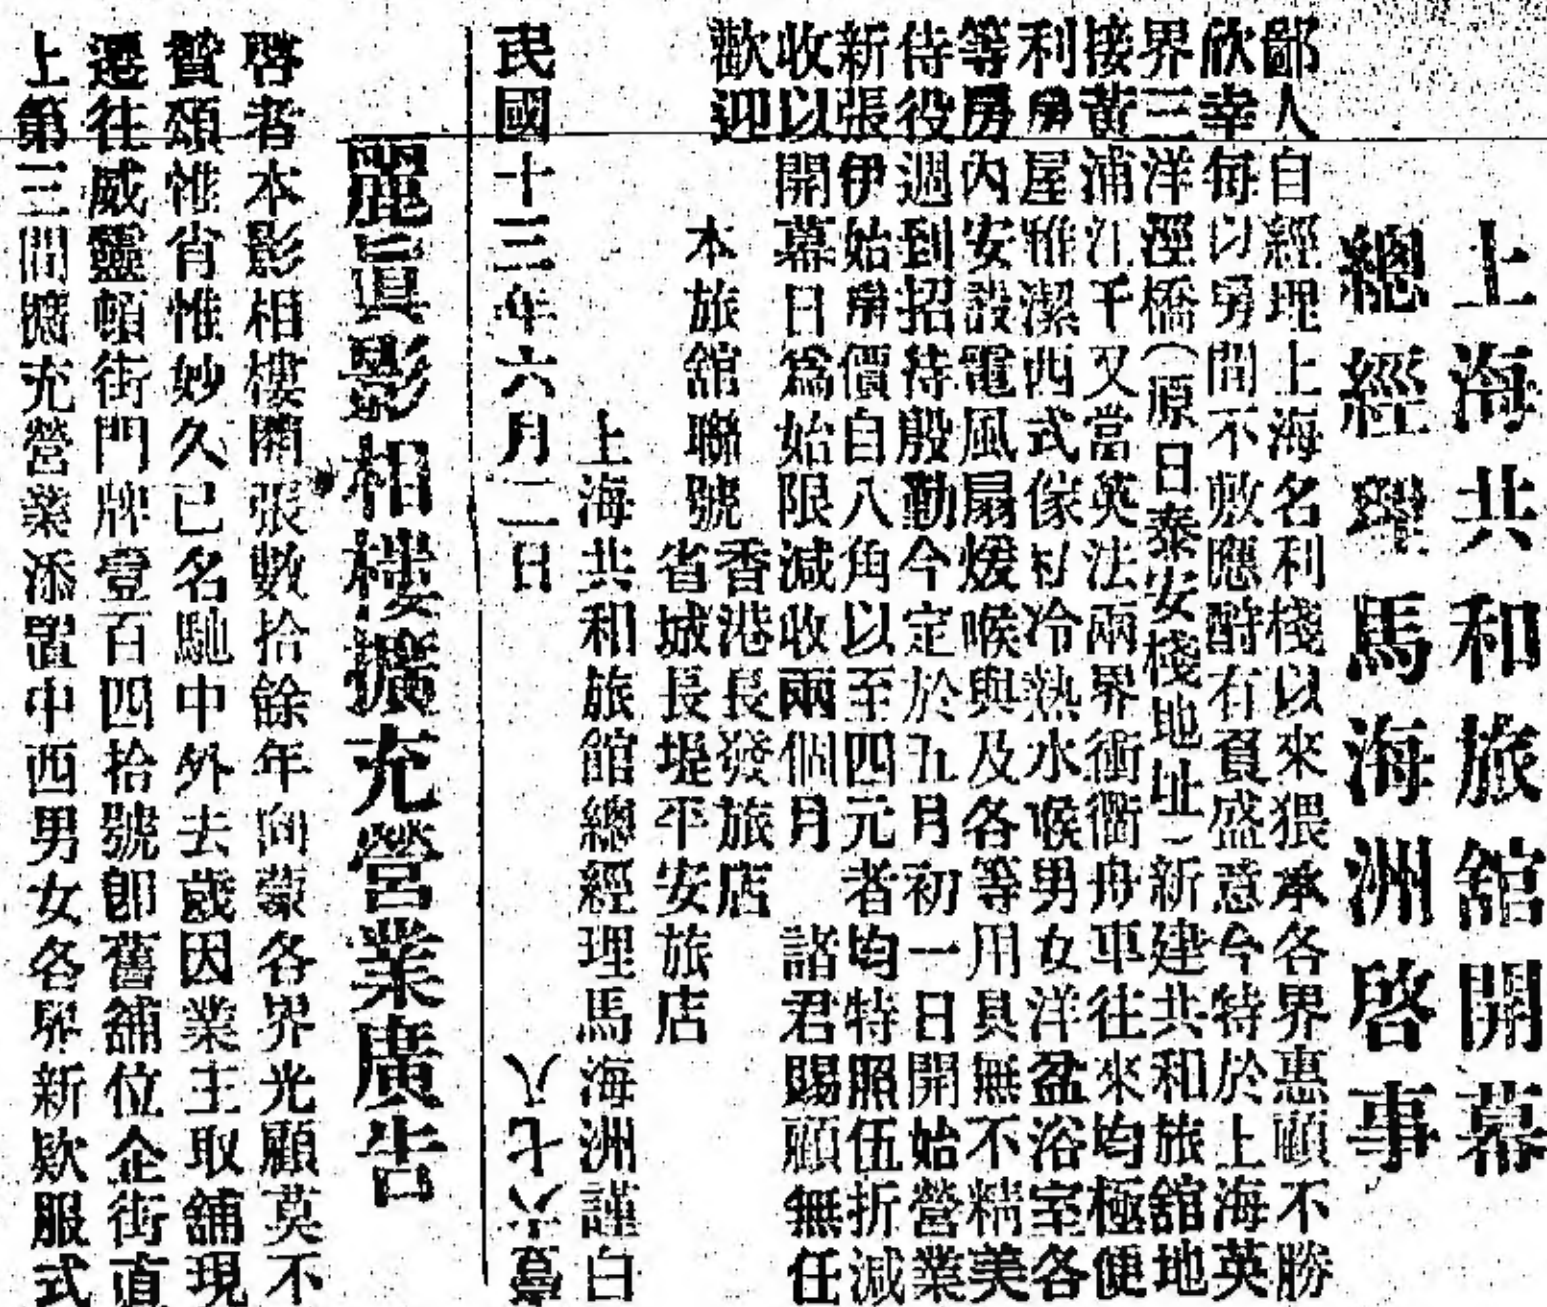 上海共和旅館開幕
總經理馬海洲啓事
鄙人自經理上海名利棧以來猥承各界惠顧不勝
欣幸每以房間不敷應酧有負盛意今特於上海英
界三洋涇橋（原日泰安棧地址）新建共和旅館地
接黃浦江干又當英法兩界衝衢舟車往來均極便
利房屋雅潔西式傢私冷熱水喉男女洋盆浴室各
等房內安設電風扇煖喉與及各等用具無不精美
待役週到招待殷勤今定於五月初一日開始營業
新張伊始房價自八角以至四元者均特照伍折減
收以開幕日爲始限減收兩個月　諸君賜顧無任
歡迎
本旅館聯號
香港長發旅店
省城長堤平安旅店
上海共和旅館總經理馬海洲謹白
民國十三年六月二日
八七六壹
麗眞影相樓擴充營業廣告
啓者本影相樓開張數拾餘年向蒙各界光顧莫不
贊頌惟肖惟妙久已名馳中外去歲因業主取舖現
遷往威靈頓街門牌壹百四拾號卽舊舖位企街直
上第三間擴充營業添置中西男女各界新欵服式